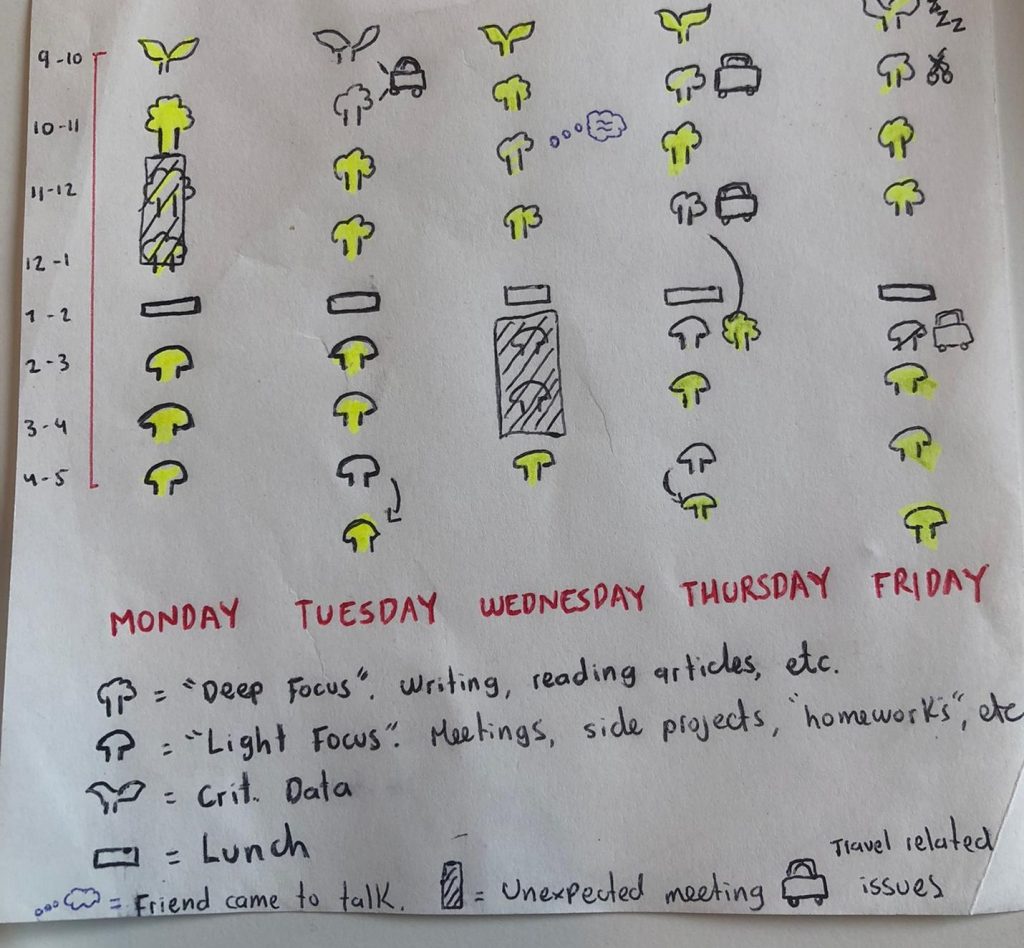 9-10
10-11
11-12
12-1
1-2
2-3
3-4
4-5
zzz
MONDAY TUESDAY WEDNESDAY THURSDAY FRIDAY
= "Deep Focus". Writing, reading articles, etc.
= "Light Focus". Meetings, side projects, "homeworks", etc
= Crit. Data
= Lunch
= Friend came to talk. = Unexpected meeting Travel related
issues